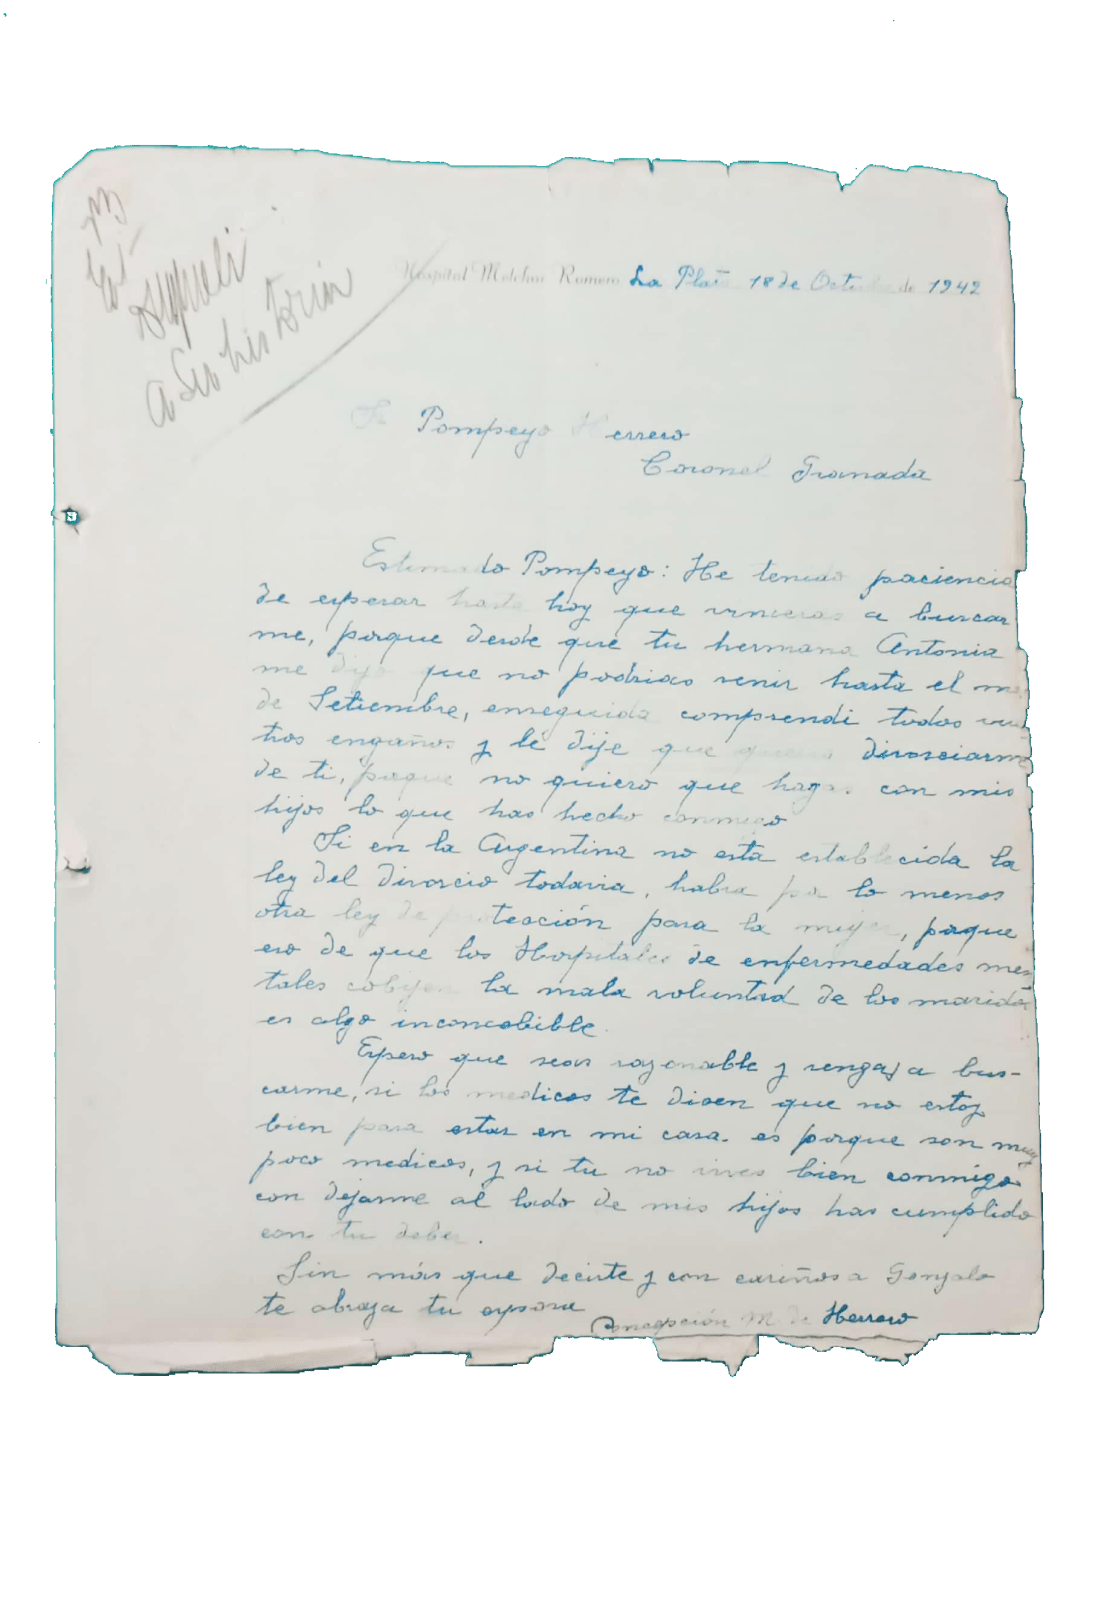 a su historia
Hospital Melchor Romero La Plata 18 de Octubre de 1942
Sr Pompeyo Herrero
Coronel Granada
Estimado Pompeyo: He tenido paciencia
de esperar hasta hoy que vinieras a buscar
me, porque desde que tu hermana Antonia
me dijo que no podrias venir hasta el mes
de Setiembre, enseguida comprendi todos vues
tros engaños y le dije que queria divorciarme
de ti, porque no quiero que hagas con mis
hijos lo que has hecho conmigo
Si en la Argentina no está establecida la
ley del divorcio todavia, habra por lo menos
otra ley de protección para la mujer, porque
eso de que los Hospitales de enfermedades men
tales cobijen la mala voluntad de los maridos
es algo inconcebible.
Espero que seas razonable y vengas a bus-
carme, si los medicos te dicen que no estoy
bien para estar en mi casa. es porque son muy
poco medicos, y si tu no vives bien conmigo
con dejarme al lado de mis hijos has cumplido
con tu deber.
Sin más que decirte y con cariños a Gonzalo
te abraza tu esposa
Concepción M. de Herrero